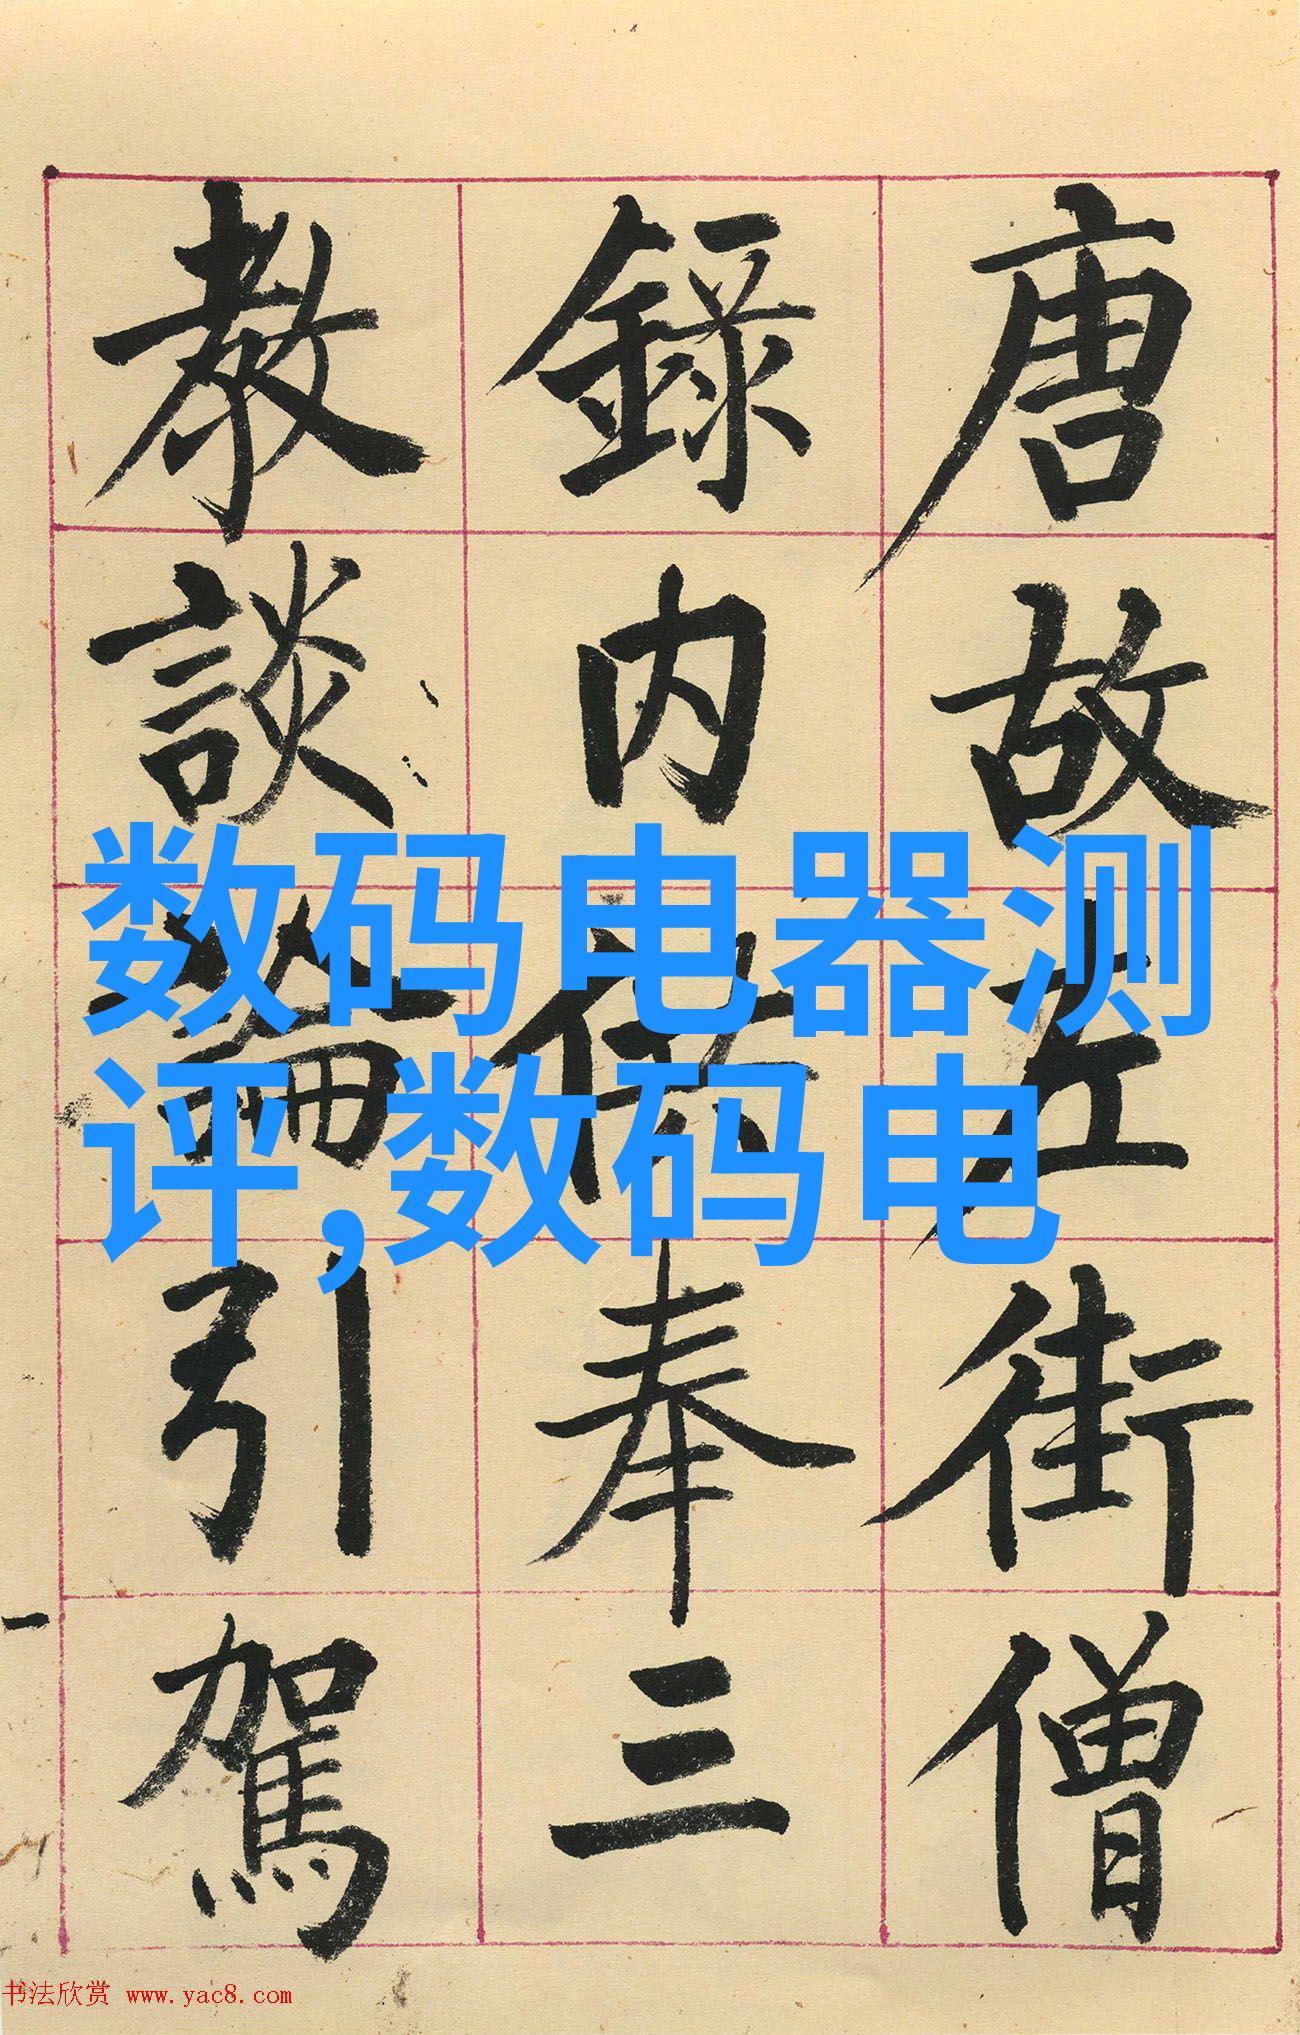 唐故左街僧
錄内供奉三
教談論引駕
数码电器测
评,数码电
书法欣赏 www.yac8.com